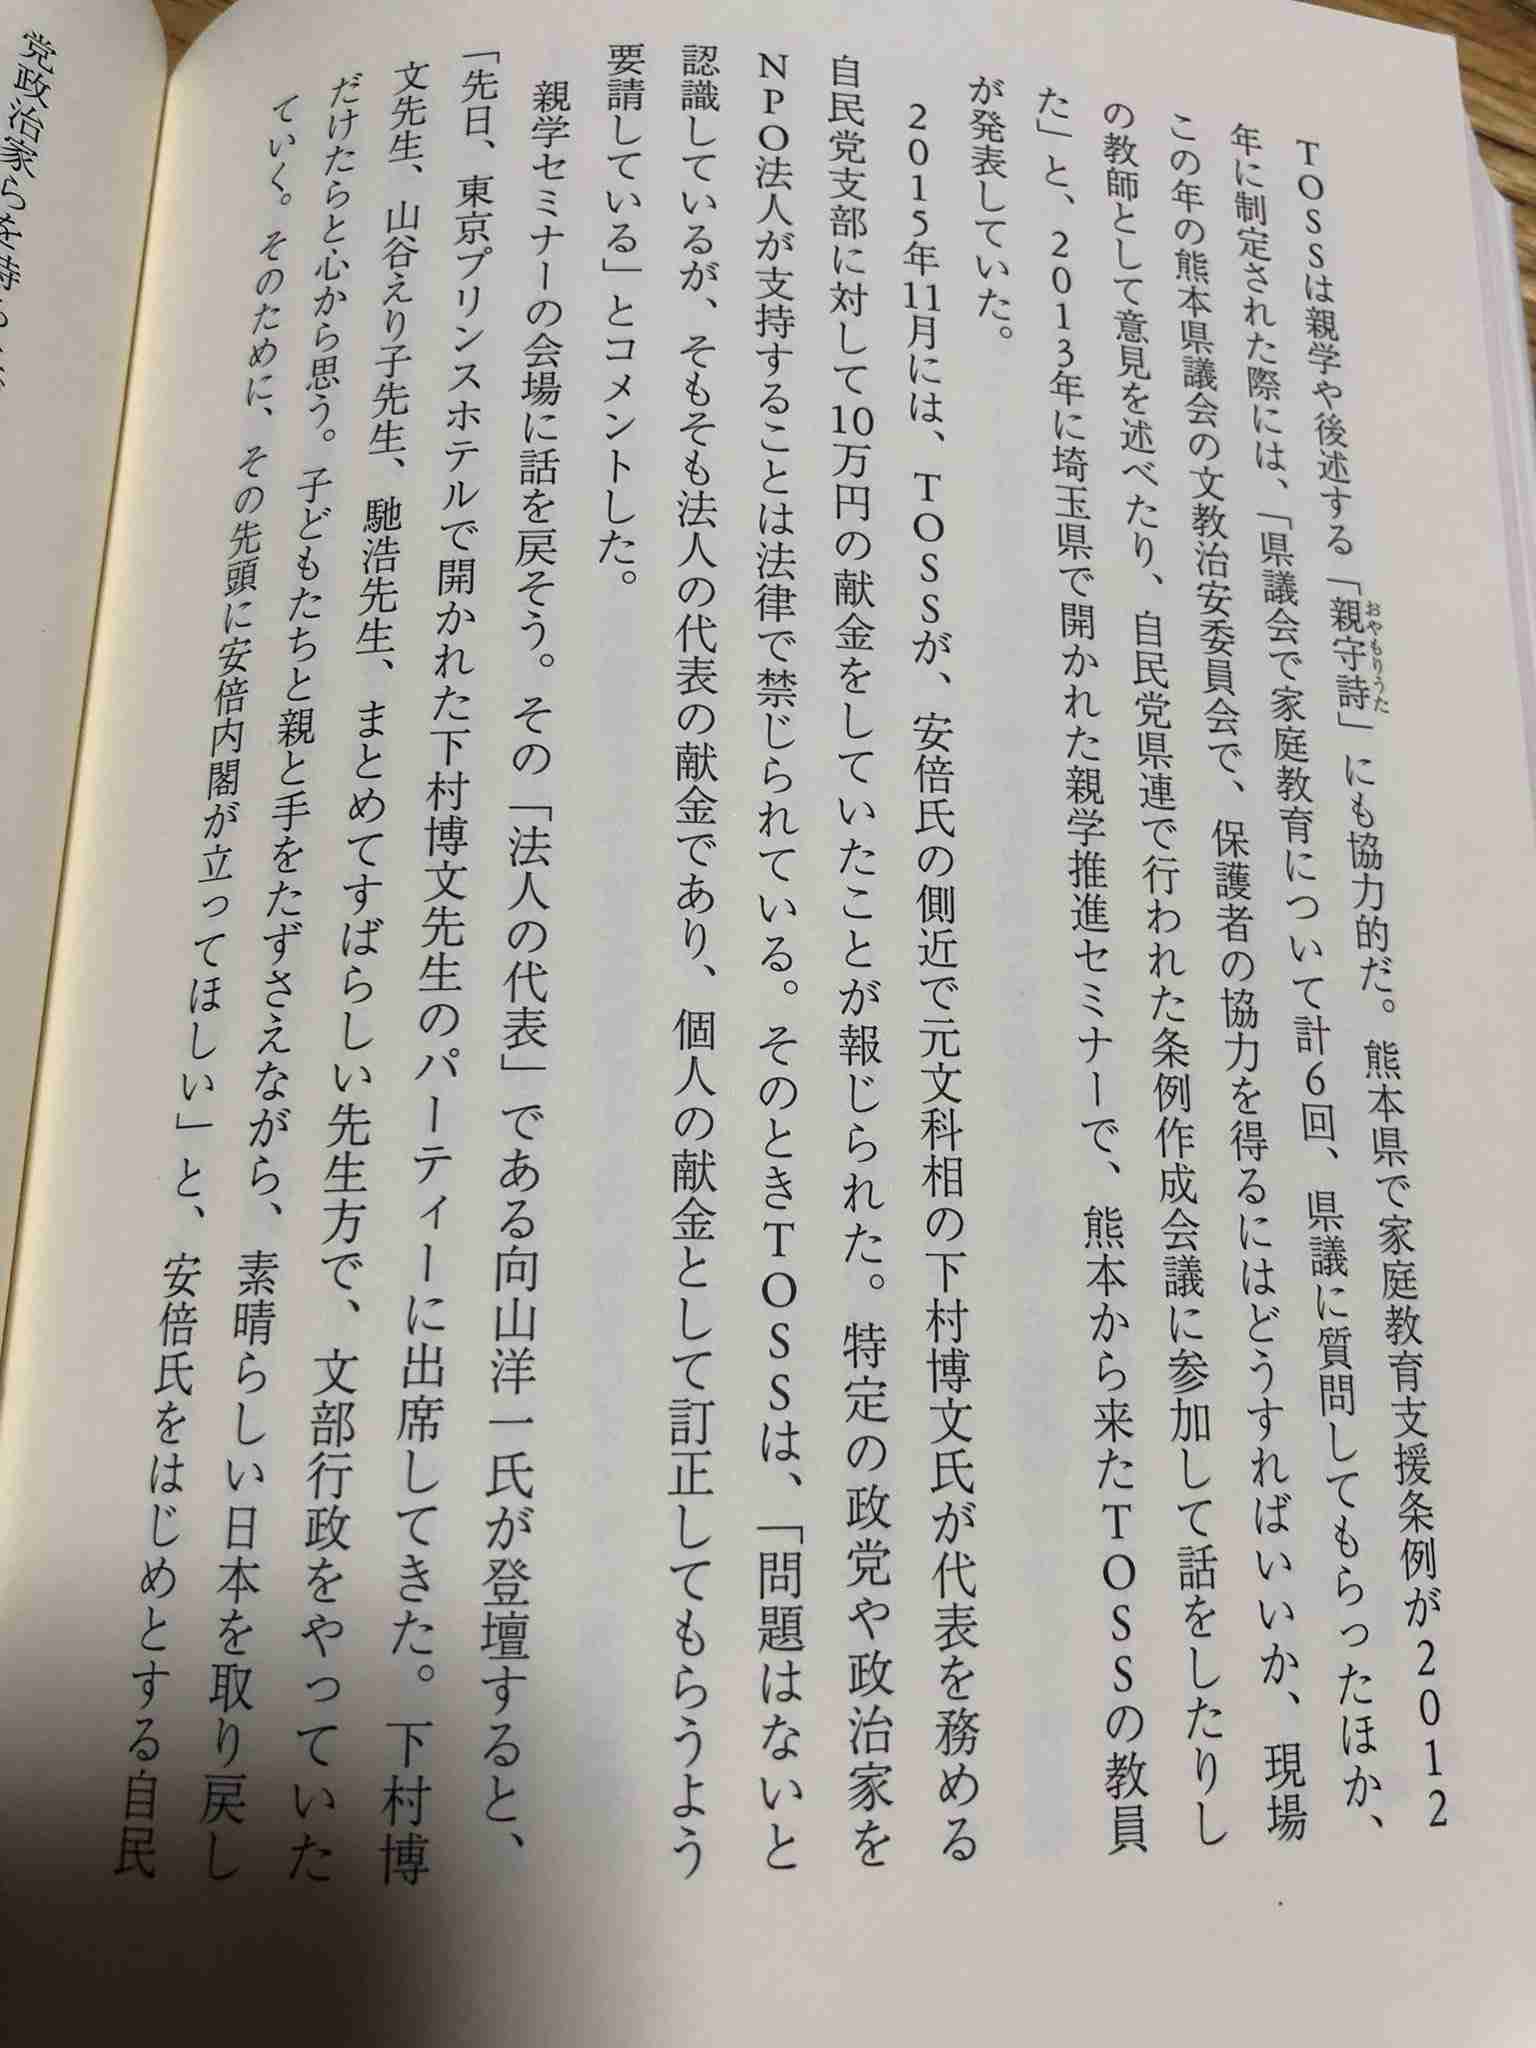 TOSSは親学や後述する「親守詩」にも協力的だ。熊本県で家庭教育支援条例が2012
おやもりうた
年に制定された際には、「県議会で家庭教育について計6回、県議に質問してもらったほか、
この年の熊本県議会の文教治安委員会で、保護者の協力を得るにはどうすればいいか、現場
の教師として意見を述べたり、自民党県連で行われた条例作成会議に参加して話をしたりし
た」と、2013年に埼玉県で開かれた親学推進セミナーで、熊本から来たTOSSの教員
が発表していた。
2015年11月には、TOSSが、安倍氏の側近で元文科相の下村博文氏が代表を務める
自民党支部に対して10万円の献金をしていたことが報じられた。特定の政党や政治家を
NPO法人が支持することは法律で禁じられている。そのときTOSSは、「問題はないと
認識しているが、そもそも法人の代表の献金であり、個人の献金として訂正してもらうよう
要請している」とコメントした。
親学セミナーの会場に話を戻そう。その「法人の代表」である向山洋一氏が登壇すると、
「先日、東京プリンスホテルで開かれた下村博文先生のパーティーに出席してきた。下村博
文先生、山谷えり子先生、馳浩先生、まとめてすばらしい先生方で、文部行政をやっていた
だけたらと心から思う。子どもたちと親と手をたずさえながら、素晴らしい日本を取り戻し
ていく。そのために、その先頭に安倍内閣が立ってほしい」と、安倍氏をはじめとする自民
党政治家らを